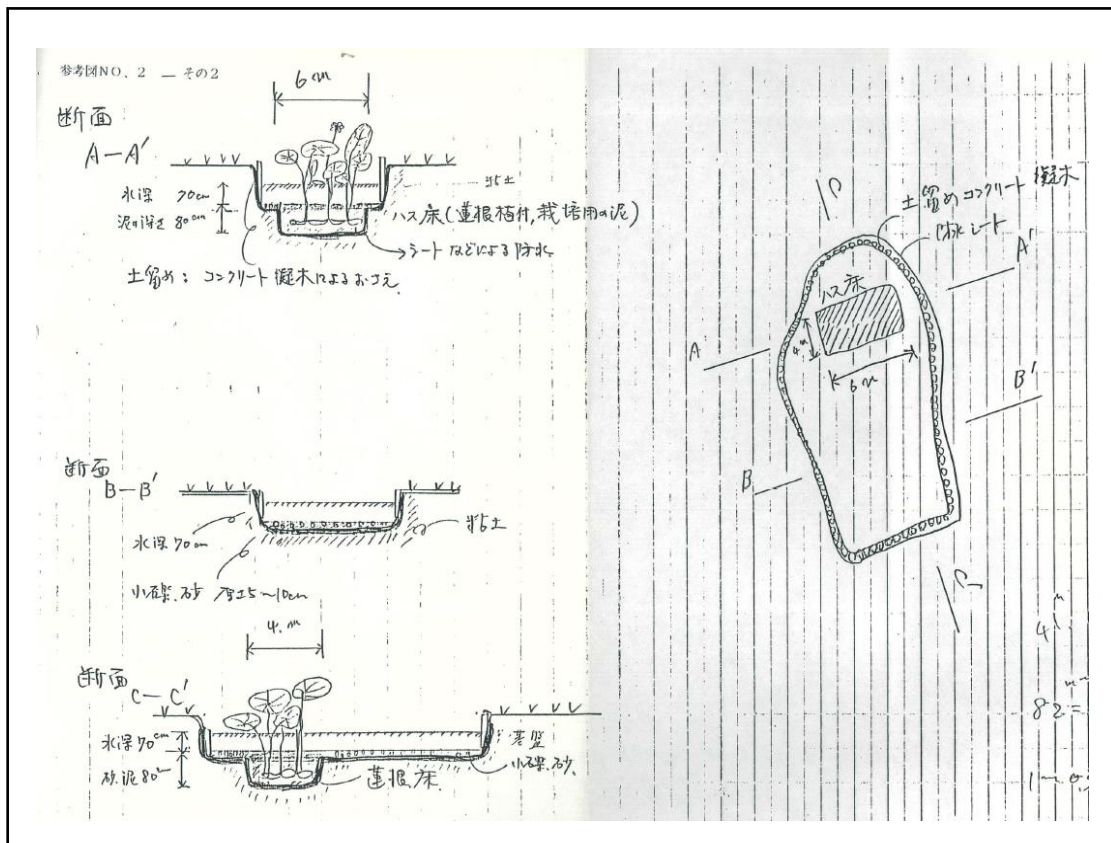 参考図NO、2 — その2
断面
A—A'
6m
水深 70cm
泥の深さ 80cm
粘土
ハス床(蓮根植付,栽培用の泥)
シートなどによる防水
土留め: コンクリート擬木によるおさえ
断面
B—B'
水深70cm
粘土
小礫、砂 厚さ5〜10cm
4.m
断面
C—C'
水深70cm
砂泥80cm
小礫、砂、
蓮根床
土留めコンクリート擬木
防水シート
A'
ハス床
4m
6m
A
B'
B